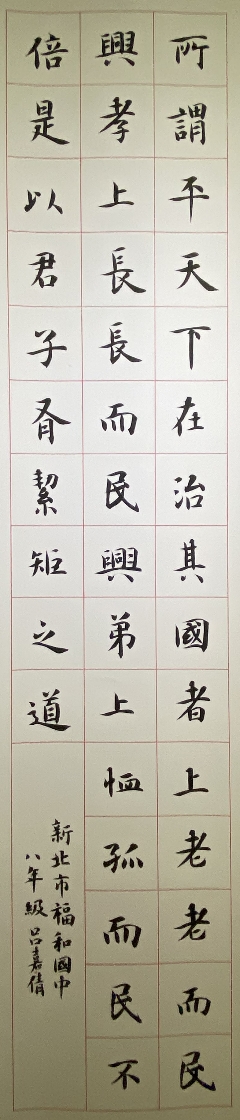 所謂平天下在治其國者上老老而民
興孝上長長而民興弟上恤孤而民不
倍是以君子有絜矩之道
新北市福和國中
八年級呂嘉倩